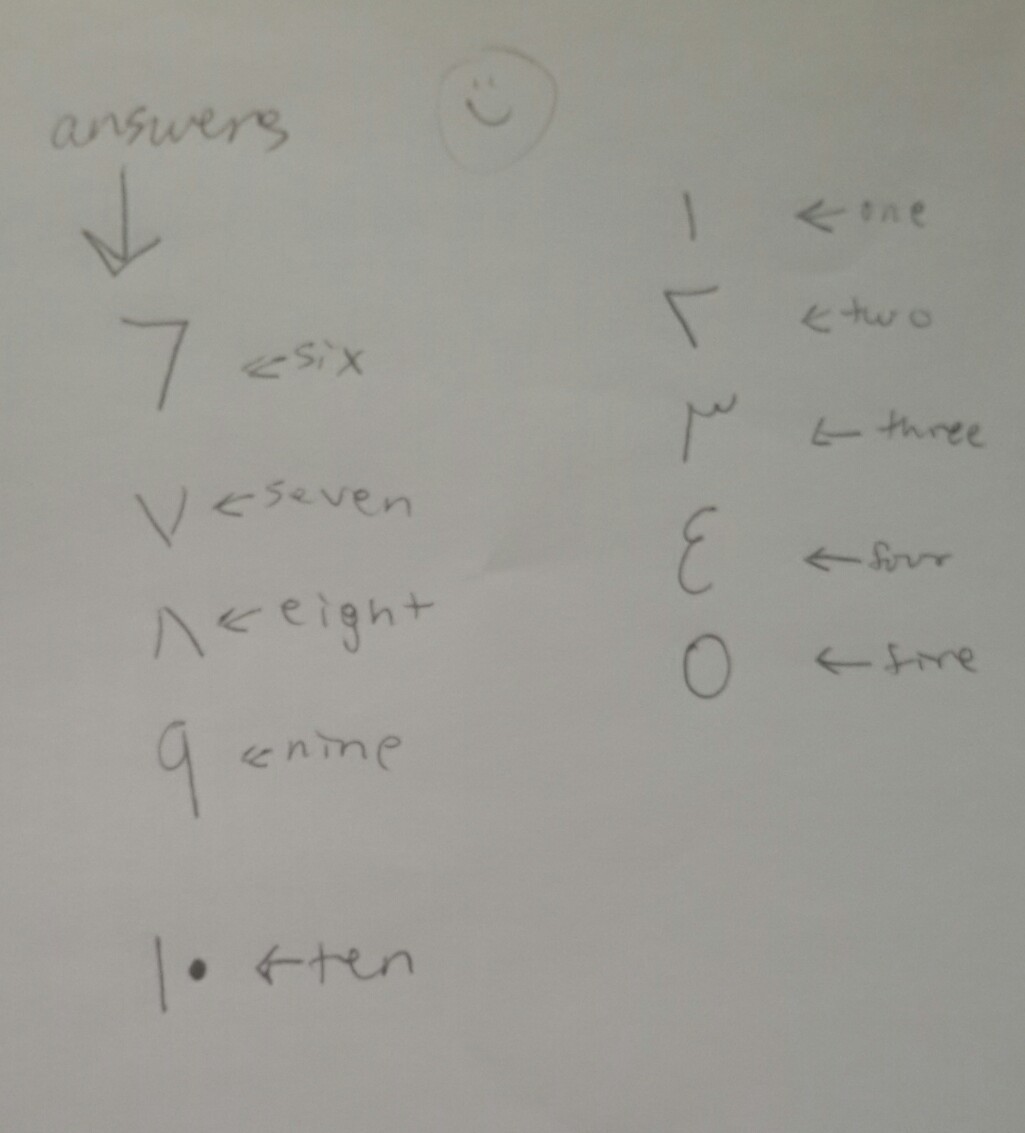 answers
↓
٦ ← six
٧ ← seven
٨ ← eight
٩ ← nine
١٠ ← ten
١ ← one
٢ ← two
٣ ← three
٤ ← four
٥ ← five